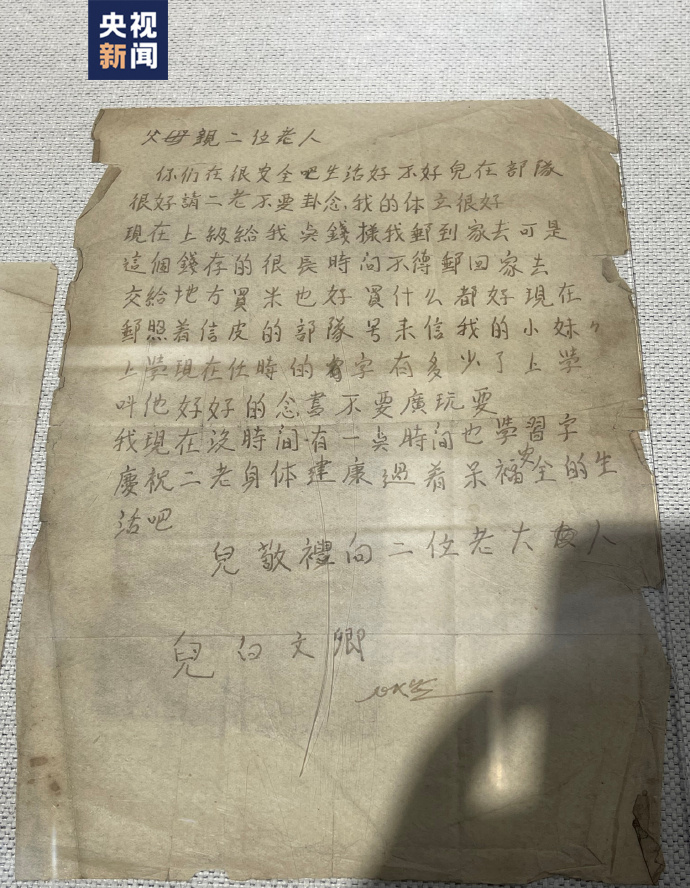 央视
新闻
父母親二位老人
你们在很安全吧生活好不好兒在部隊
很好請二老不要卦念我的体立很好
現在上級給我吳錢樣我郵到家去可是
這個錢存的很長時间不得郵回家去
交給地方買米也好買什么都好現在
郵照着信皮的部隊号来信我的小妹〃
上學現在仕時的字有多少了上學
叫他好好的念書不要廣玩耍
我現在没時间有一吳時间也學習字
慶祝二老身体建康過着呆福安全的生
活吧
兒敬禮向二位老大人
兒白文卿